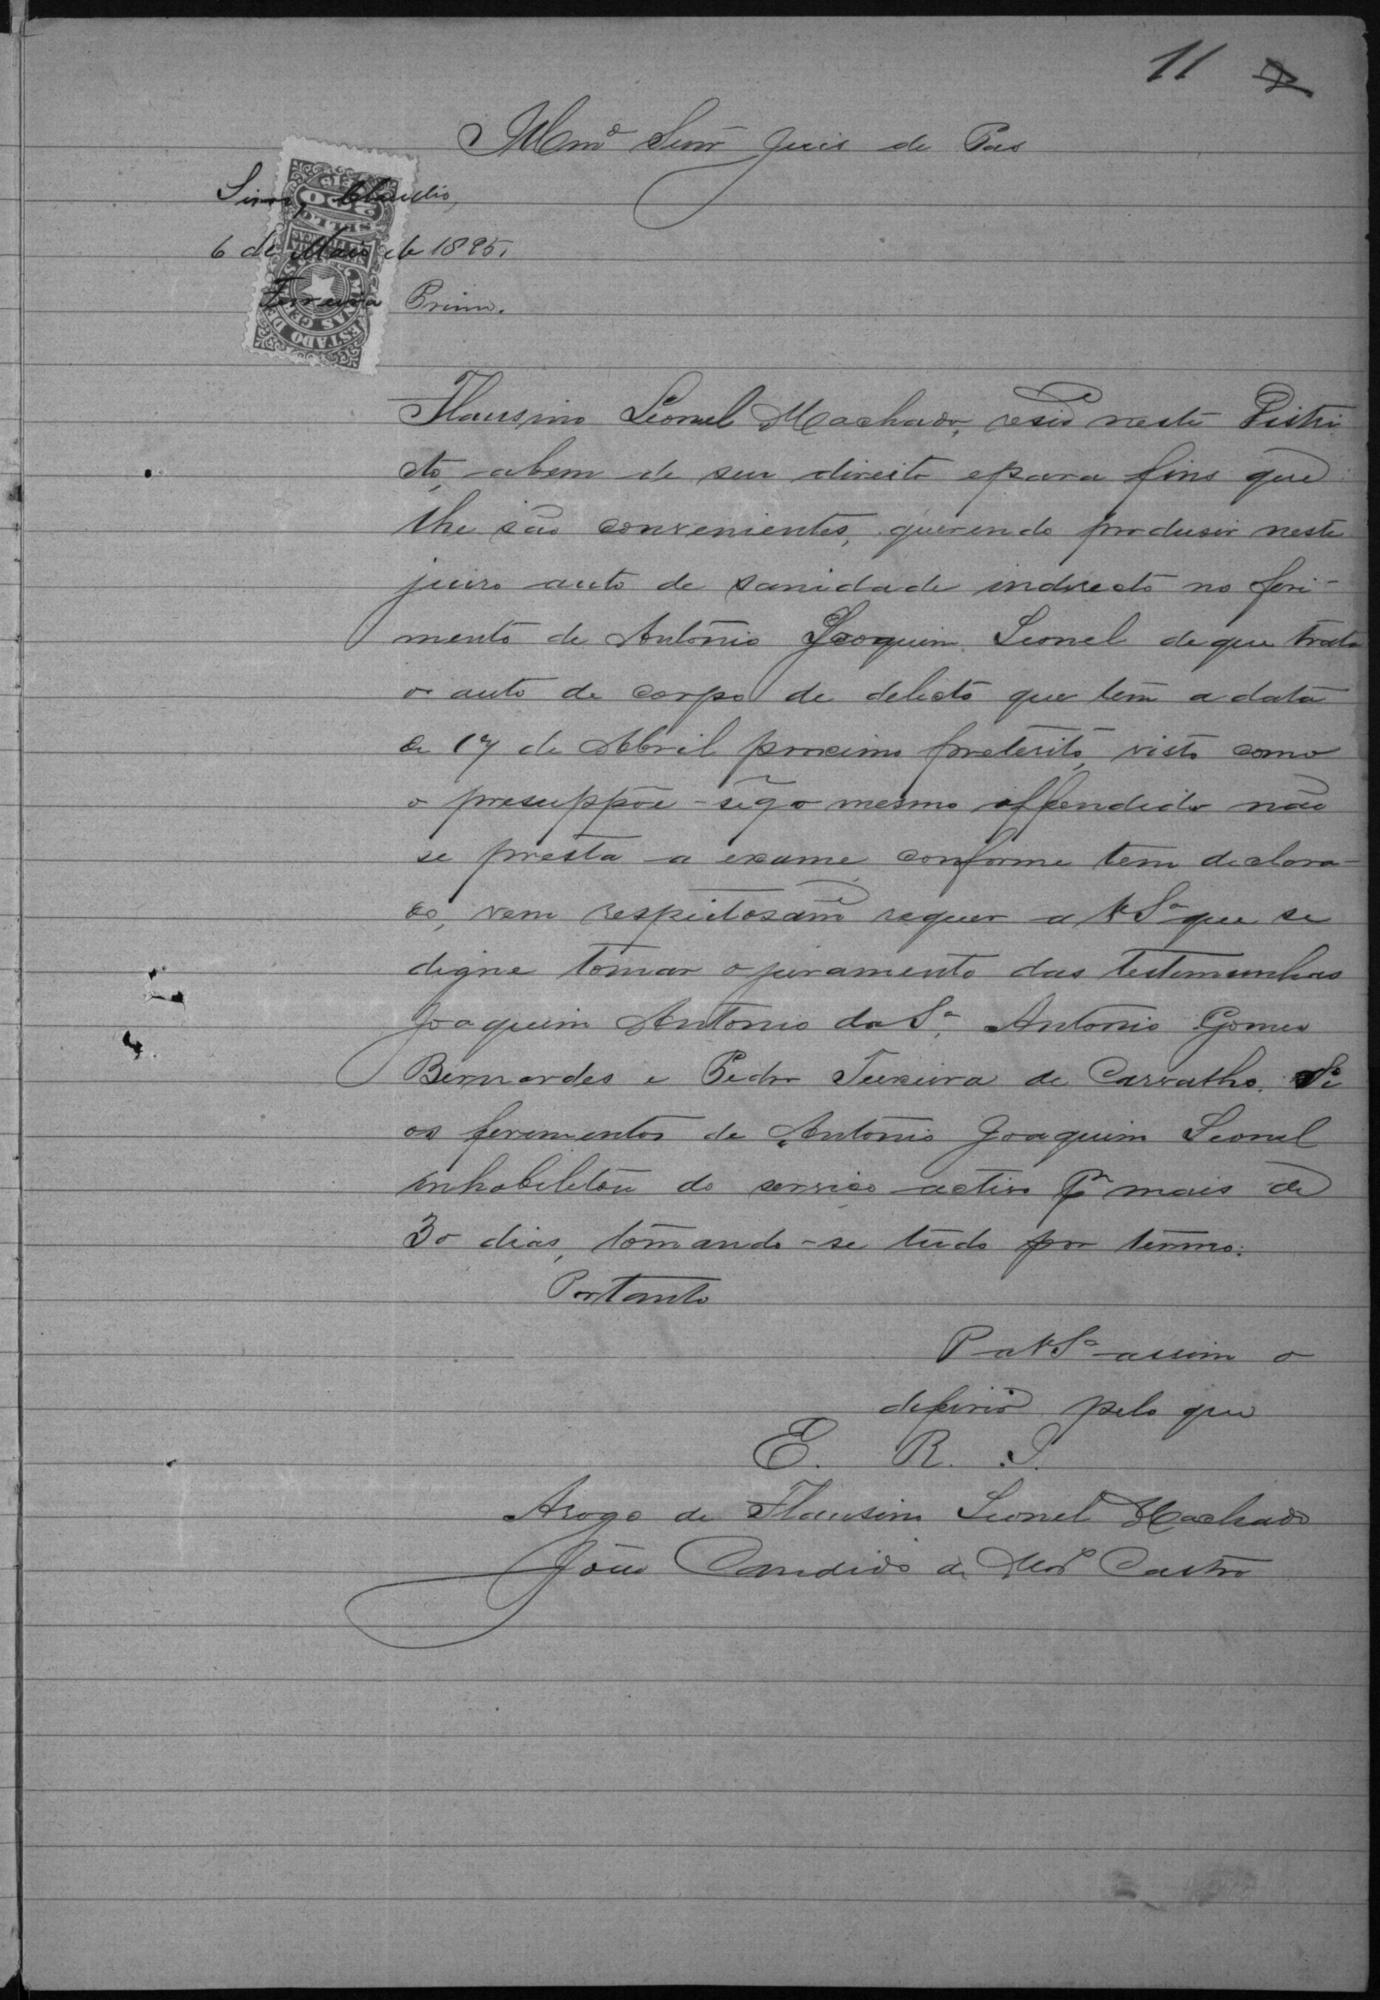 11 2
Illmº Senr Juis de Pas
Sim, Claudio,
6 de Maio de 1895.
Ferreira Primo.
200
SELLO
ESTADO DE MINAS GERAES
Flausino Leonel Machado, residᵉ neste Distri
cto, abem de seu direito epara fins que
lhe são convenientes, querendo produsir neste
juiso auto de sanidade indirecto no feri-
mento de Antonio Joaquim Leonel de que trata
o auto de corpo de delicto que tem a data
de 17 de Abril proximo preterito, visto como
o presuppõe-se q̃ o mesmo offendido não
se presta a exame, conforme tem declara-
do, vem respeitosamᵉ requer a V Sª que se
digne tomar o juramento das testemunhas
Joaquim Antonio da Sª, Antonio Gomes
Bernardes e Pedro Teixeira de Carvalho. Si
os ferimentos de Antonio Joaquim Leonel
inhabilitou do serviço activo Pr mais de
30 dias, tomando-se tudo por termo.
Portanto
P a V Sª assim o
deferir pelo que
E. R. J.
Arogo de Flausino Leonel Machado
João Candido de Castro